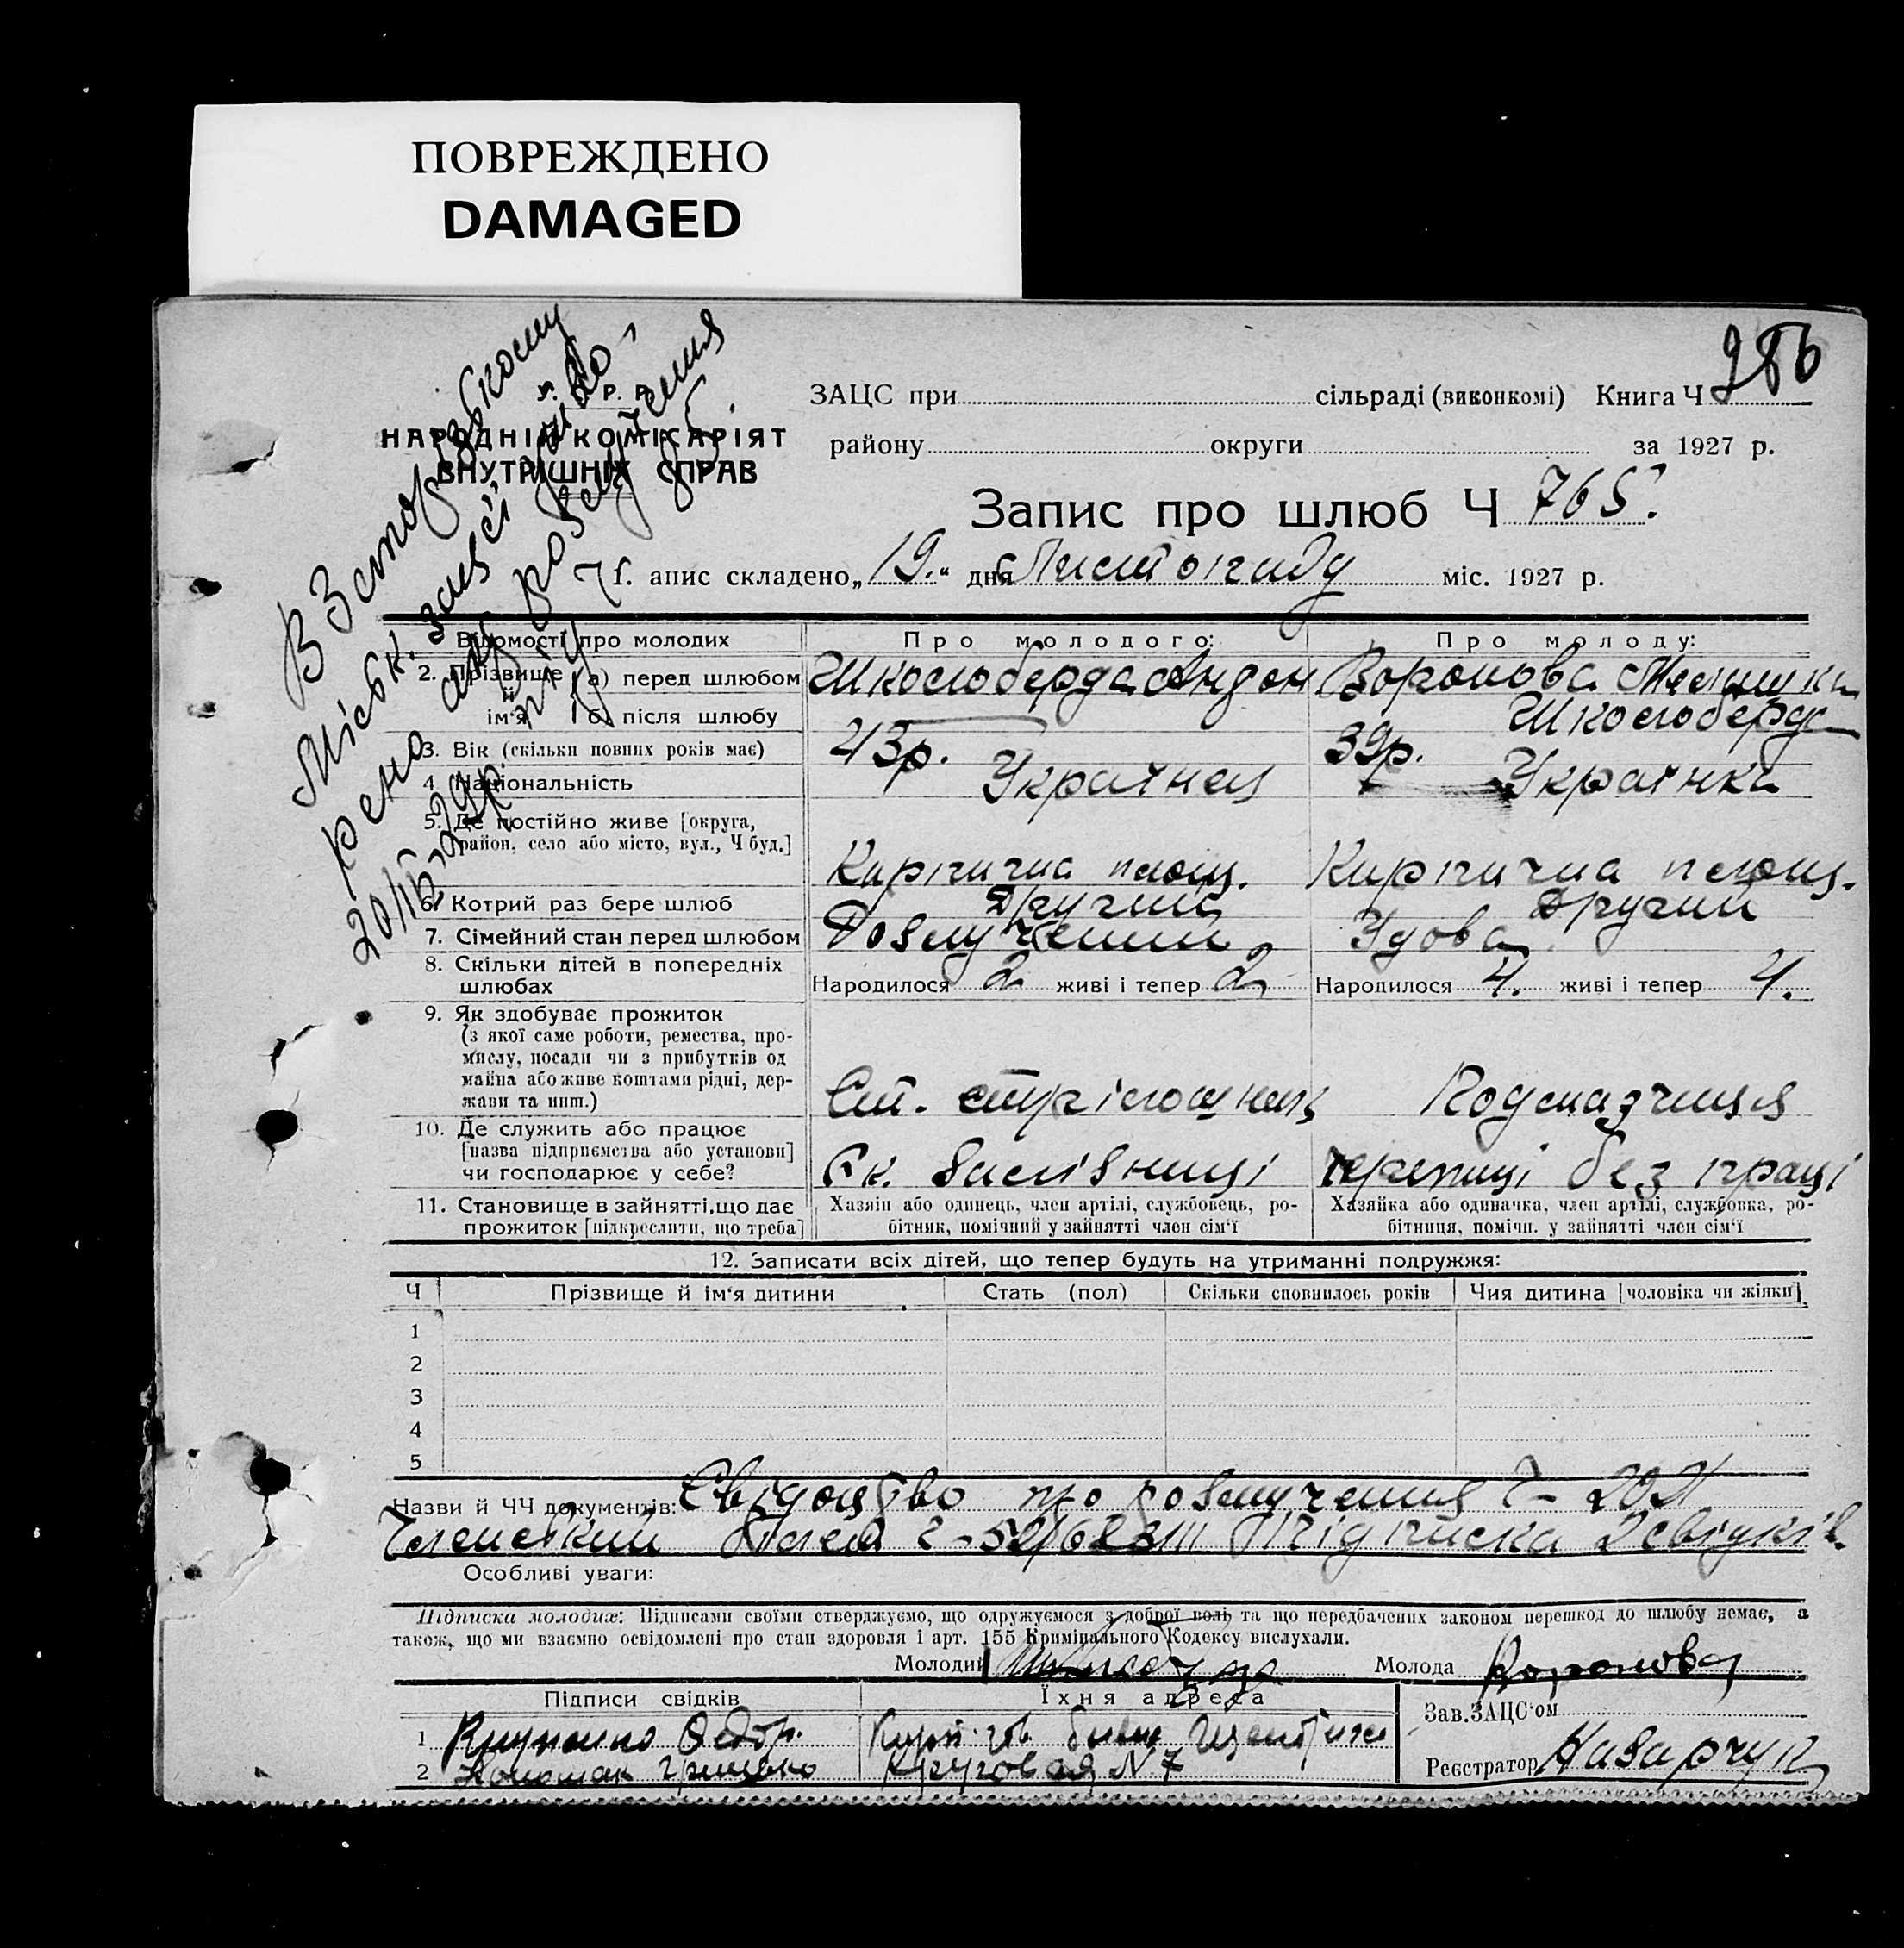 ПОВРЕЖДЕНО
DAMAGED
286
У. С. Р. Р.
НАРОДНІЙ КОМІСАРІЯТ
ВНУТРІШНІХ СПРАВ
В Запорізькому
Міськ. загсі
рено акт розлучення
20/IV-29р.
ЗАЦС при сільраді (виконкомі) Книга Ч
району округи за 1927 р.
Запис про шлюб Ч 765.
1. апис складено „19.“ дня Листопаду міс. 1927 р.
Відомості про молодих Про молодого: Про молоду:
2. Прізвище й ім'я а) перед шлюбом Шкослоберда Андон Воронова
б) після шлюбу Шкослоберда
3. Вік (скільки повних років має) 43р. 39р.
4. Національність Українец Українка
5. Де постійно живе [округа,
район, село або місто, вул., Ч буд.]
Кирпична площ. Кирпична площ.
6. Котрий раз бере шлюб Другий Другий
7. Сімейний стан перед шлюбом Розлучений Удова
8. Скільки дітей в попередніх
шлюбах Народилося 2 живі і тепер 2 Народилося 4. живі і тепер 4.
9. Як здобуває прожиток
(з якої саме роботи, ремества, про-
мислу, посади чи з прибутків од
майна або живе коштами рідні, дер-
жави та инш.) Ст. стрілошник
10. Де служить або працює
[назва підприємства або установи]
чи господарює у себе? Єк. залізниці черепиці без праці
11. Становище в зайнятті, що дає
прожиток [підкреслити, що треба]
Хазяїн або одинець, член артілі, службовець, ро-
бітник, помічний у зайнятті член сім'ї
Хазяйка або одиначка, член артілі, службовка, ро-
бітниця, помічн. у зайнятті член сім'ї
12. Записати всіх дітей, що тепер будуть на утриманні подружжя:
Ч Прізвище й ім'я дитини Стать (пол) Скільки сповнилось років Чия дитина [чоловіка чи жінки]
1
2
3
4
5
Назви й ЧЧ документів: Свідоцтво про розлучення Ч- 2021
Членський білет Підписка 2 свідків
Особливі уваги:
Підписка молодих: Підписами своїми стверджуємо, що одружуємося з доброї волі та що передбачених законом перешкод до шлюбу немає, а
також, що ми взаємно освідомлені про стан здоровля і арт. 155 Кримінального Кодексу вислухали.
Молодий Молода Воронова
Підписи свідків Їхня адреса Зав. ЗАЦС'ом
1 Федор.
2 Грицько Круговая N 7
Реєстратор Назарчук